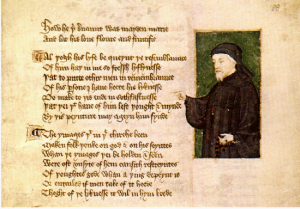 How he þi servaunt was mayden marie
And lat his love floure and fructifie
Al þogh his lyfe be queynt þe resemblaunce
Of him haþ in me so fressh lyflynesse
Þat to putte othir men in remembraunce
Of his persone I have heere his lyknesse
Do make to þis ende in sothfastnesse
Þat þei þt have of him lest þought & mynde
By þis peynture may ageyn him fynde
The ymages þt in þe chirche been
Maken folk þenke on god & on his seyntes
Whan þe ymages þei be holden & seen
Were oft unsyte of hem causith restreyntes
Of þoughtes gode whan a þing depeynt is
Or entailed if men take of it heede
Thoght of þe lyknesse it wil in hym brede